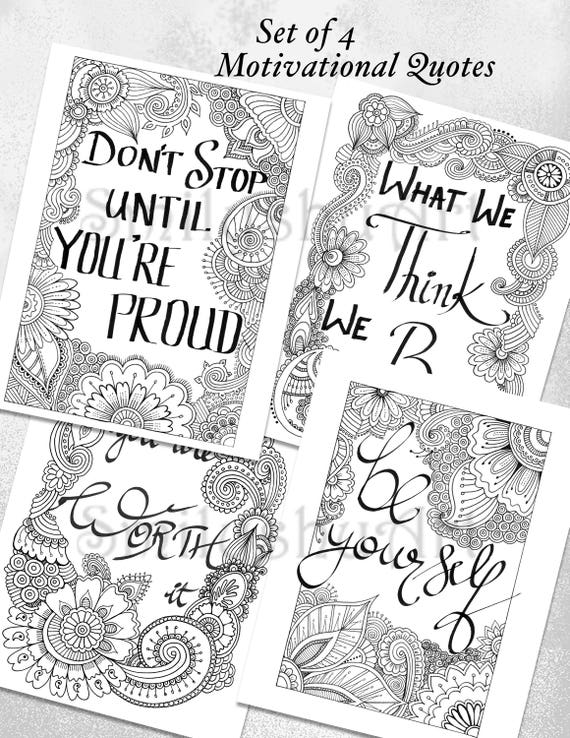 Set of 4
Motivational Quotes
DON'T STOP
UNTIL
YOU'RE
PROUD
WHAT WE
Think
WE R
you are
WORTH
it
be
yourself